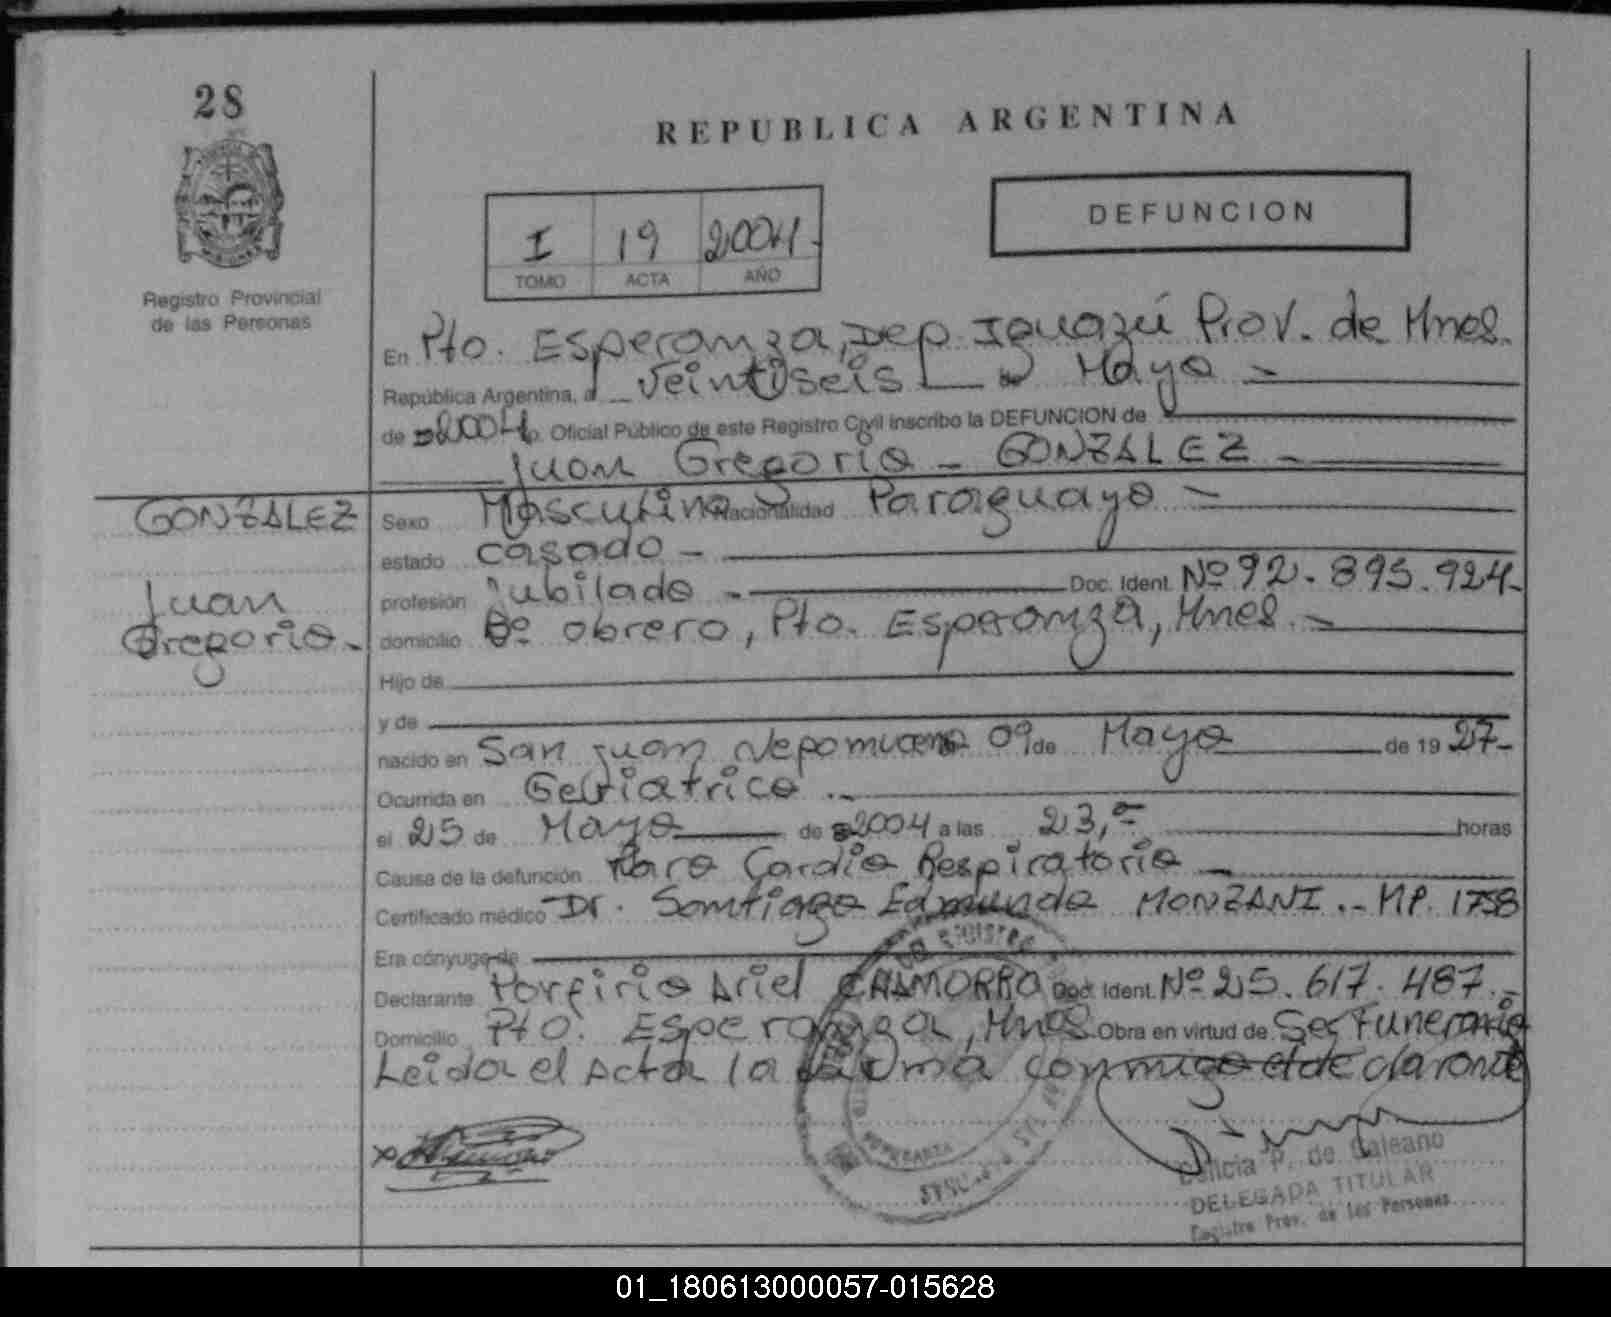 28
REPUBLICA ARGENTINA
DEFUNCION
I 19 2004
TOMO ACTA AÑO
Registro Provincial
de las Personas
En Pto. Esperanza, Dep. Iguazú Prov. de Mnes.
República Argentina, a veintiseis Mayo
de 2004 Oficial Público de este Registro Civil inscribo la DEFUNCION de
Juan Gregorio - GONZALEZ
GONZALEZ
Juan
Gregorio.
Sexo Masculino Nacionalidad Paraguayo
estado casado
profesión jubilado Doc. Ident. Nº 92.895.924
domicilio Bº obrero, Pto. Esperanza, Mnes.
Hijo de
y de
nacido en San Juan Nepomuceno 09 de Mayo de 19 27
Ocurrida en Geriatrico
el 25 de Mayo de 2004 a las 23, horas
Causa de la defunción Paro Cardio Respiratorio
Certificado médico Dr. Santiago Edmundo MONZANI.- MP. 1758
Era cónyuge de
Declarante Porfirio Ariel Doc. Ident. Nº 25.617.487
Domicilio Pto. Esperanza, Mnes. Obra en virtud de Ser Funerario
Leida el Acta la firma conmigo el declarante
P. de Galeano
DELEGADA TITULAR
Registro Prov. de las Personas
01_180613000057-015628